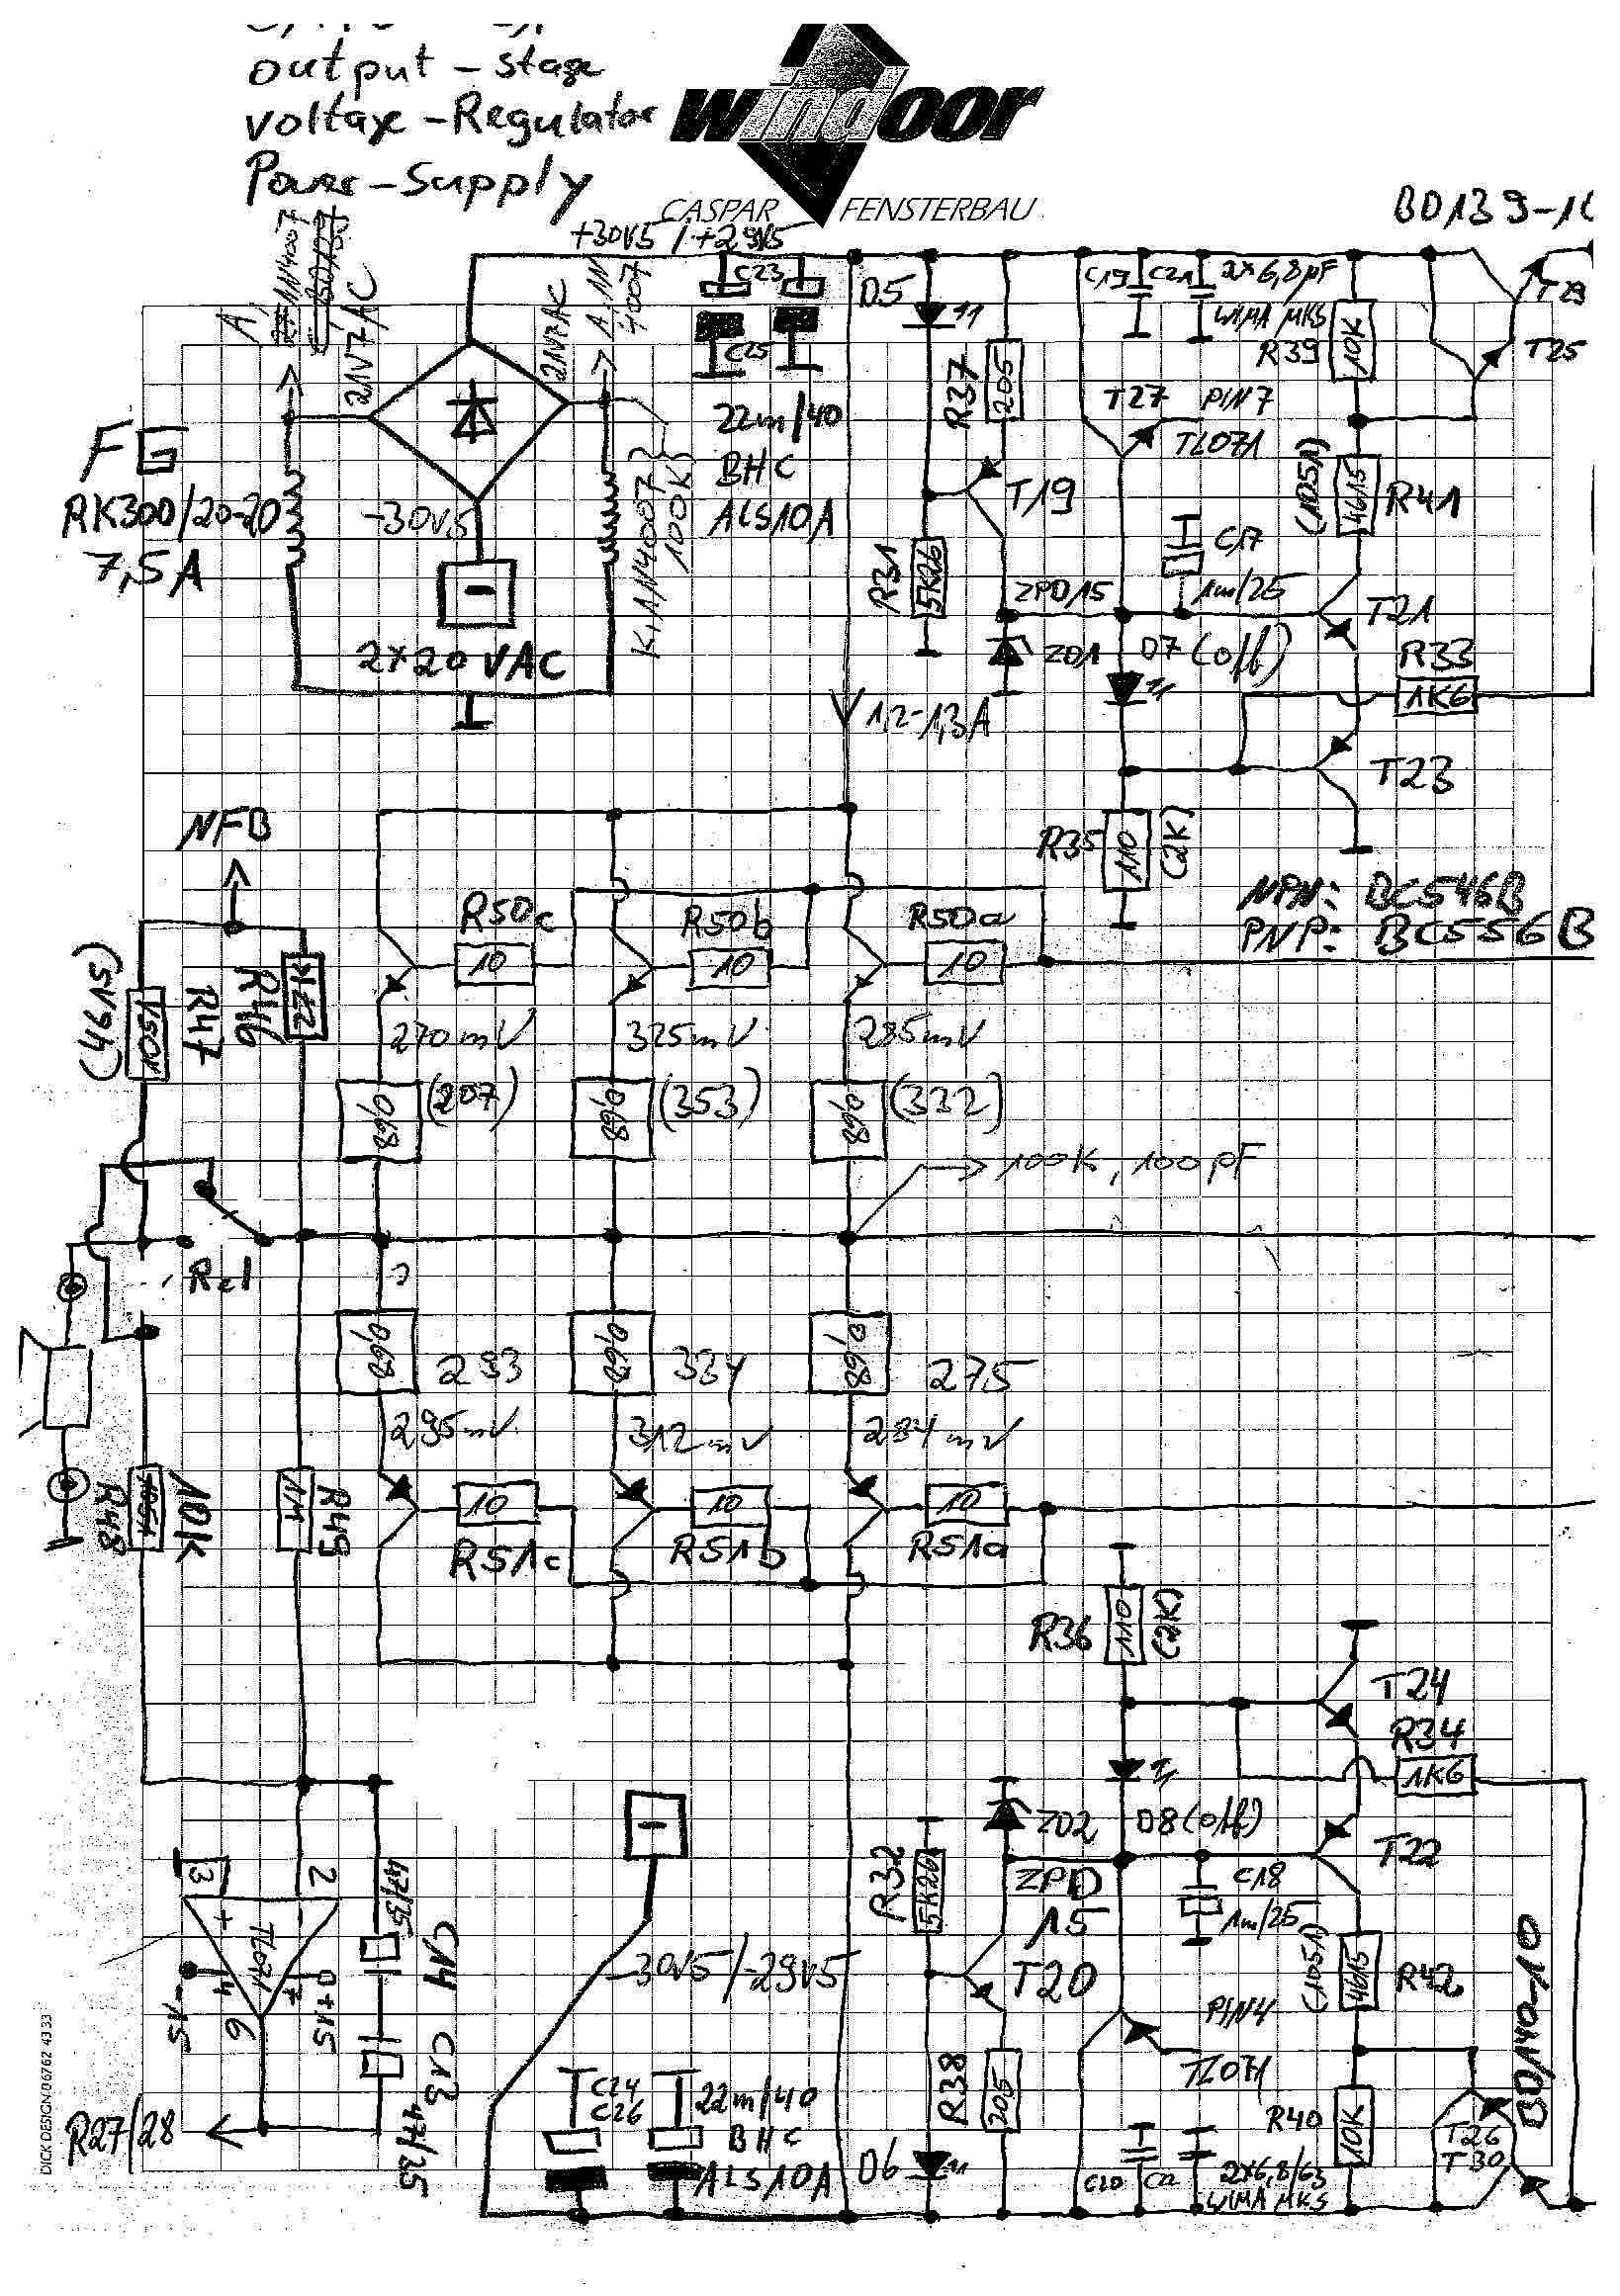 output - stage
voltage - Regulator
Power - Supply
windoor
CASPAR FENSTERBAU
BD139-1
+30V5 / +29V5
21V7 AC
21V7 AC
A 1N 4007
FG
RK300/20-20
7,5A
-30V5
2x20 VAC
K, 1N4007
100K
C23
C25
22m/40
BHC
ALS10A
D5
R37
205
T19
R31
5K26
ZPD15
ZD1
D7 (off)
C19
C21
2x6,8µF
WIMA MKS
R39
10K
T27
PIN7
TL071
T25
(1051)
R41
C17
1m/25
T21
R33
1K6
T23
1,2-1,3A
R35
110
(2K)
NPN: BC546B
PNP: BC556B
NFB
R46
R47
(4615)
R50c
10
R50b
10
R50a
10
270mV
325mV
285mV
0,68
0,68
0,68
(353)
(332)
100K, 100pF
Rel
0,68
0,68
0,68
293
334
275
295mV
312mV
284mV
R48
10K
1M
R49
10
R51c
10
R51b
10
R51a
R36
110
(2K)
T24
R34
1K6
T22
ZD2
D8 (off)
ZPD
15
R32
5K26
C18
1m/25
(1051)
4615
R42
T20
PIN4
TL071
R38
205
R40
10K
T26
T30
BD140-10
3
2
+
-
TL071
4
7
6
-15
+15
47/35
C14
C13
47/35
R27/28
-
-30V5/-29V5
C24
C26
22m/40
BHC
ALS10A
D6
C20
2x6,8/63
WIMA MKS
DICK DESIGN 0 67 62 43 33